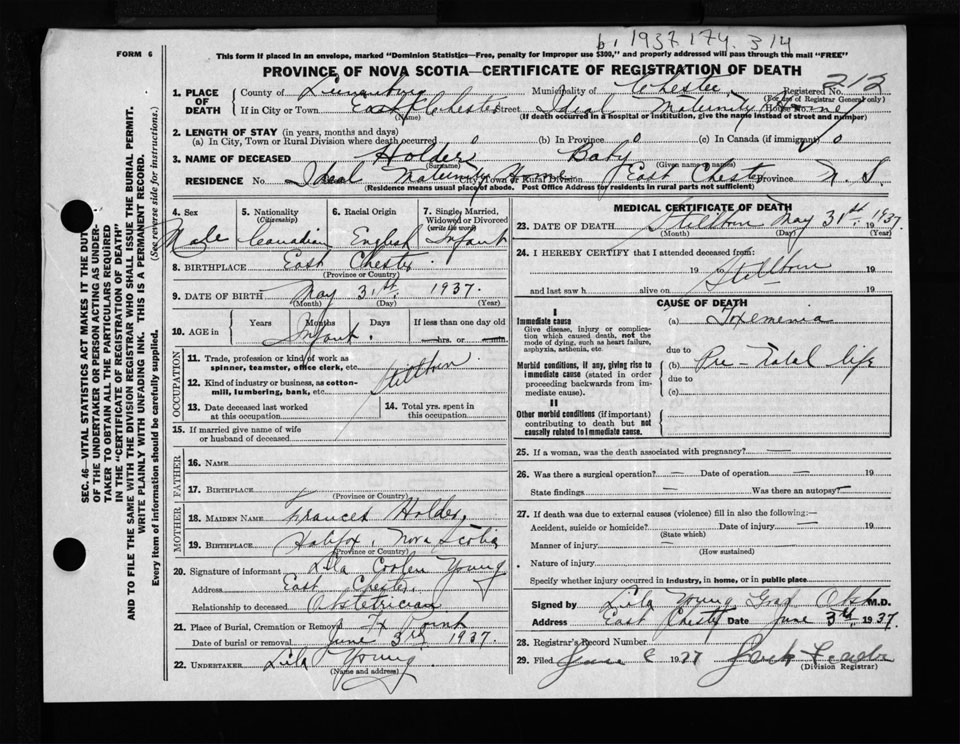 b. 1937. 174. 314
FORM 6
This form if placed in an envelope, marked "Dominion Statistics—Free, penalty for improper use $300," and properly addressed will pass through the mail "FREE"
PROVINCE OF NOVA SCOTIA—CERTIFICATE OF REGISTRATION OF DEATH
SEC. 46—VITAL STATISTICS ACT MAKES IT THE DUTY
OF THE UNDERTAKER OR PERSON ACTING AS UNDER-
TAKER TO OBTAIN ALL THE PARTICULARS REQUIRED
IN THE "CERTIFICATE OF REGISTRATION OF DEATH"
AND TO FILE THE SAME WITH THE DIVISION REGISTRAR WHO SHALL ISSUE THE BURIAL PERMIT.
WRITE PLAINLY WITH UNFADING INK. THIS IS A PERMANENT RECORD.
Every item of information should be carefully supplied. (See reverse side for instructions.)
1. PLACE OF DEATH
County of Lunenburg Municipality of Chester Registered No. 212
(For use of Registrar General only)
If in City or Town East Chester Street Ideal Maturnity Home House No.
(Name) (If death occurred in a hospital or institution, give the name instead of street and number)
2. LENGTH OF STAY (in years, months and days)
(a) In City, Town or Rural Division where death occurred 0 (b) In Province 0 (c) In Canada (if immigrant) 0
3. NAME OF DECEASED Holder Baby
(Surname) (Given name or names)
RESIDENCE No. Ideal Maturnity Home City, Town or Rural Division East Chester Province N. S.
(Residence means usual place of abode. Post Office Address for residents in rural parts not sufficient)
4. Sex 5. Nationality (Citizenship) 6. Racial Origin 7. Single, Married, Widowed or Divorced (write the word)
Male Canadian English Infant
8. BIRTHPLACE East Chester
(Province or Country)
9. DATE OF BIRTH May 31st. 1937.
(Month) (Day) (Year)
10. AGE in Years Months Days If less than one day old
Infant. hrs. or min.
OCCUPATION
11. Trade, profession or kind of work as spinner, teamster, office clerk, etc.
Stillborn
12. Kind of industry or business, as cotton-mill, lumbering, bank, etc.
13. Date deceased last worked at this occupation
14. Total yrs. spent in this occupation
15. If married give name of wife or husband of deceased
FATHER
16. NAME
17. BIRTHPLACE
(Province or Country)
MOTHER
18. MAIDEN NAME Frances Holder,
19. BIRTHPLACE Halifax, Nova Scotia
(Province or Country)
20. Signature of informant Lila Coolen Young
Address East Chester,
Relationship to deceased Obstetrician
21. Place of Burial, Cremation or Removal Fx Point
Date of burial or removal June 3rd 1937.
22. UNDERTAKER Lila Young.
(Name and address)
MEDICAL CERTIFICATE OF DEATH
23. DATE OF DEATH Stillborn May 31st. 1937
(Month) (Day) (Year)
24. I HEREBY CERTIFY that I attended deceased from:
19 to Stillborn 19
and last saw h alive on 19
CAUSE OF DEATH
I
Immediate cause
Give disease, injury or complication which caused death, not the mode of dying, such as heart failure, asphyxia, asthenia, etc.
(a) Toxemenia
due to
Morbid conditions, if any, giving rise to immediate cause (stated in order proceeding backwards from immediate cause).
(b) Pre-Natal life
due to
(c)
II
Other morbid conditions (if important) contributing to death but not causally related to immediate cause.
25. If a woman, was the death associated with pregnancy? —
26. Was there a surgical operation? — Date of operation — 19
State findings — Was there an autopsy? —
27. If death was due to external causes (violence) fill in also the following:—
Accident, suicide or homicide? Date of injury — 19
(State which)
Manner of injury —
(How sustained)
Nature of injury
Specify whether injury occurred in industry, in home, or in public place
Signed by Lila Young Grad Obst M.D.
Address East Chester Date June 3rd. 1937.
28. Registrar's Record Number
29. Filed June 8 1937
(Division Registrar)